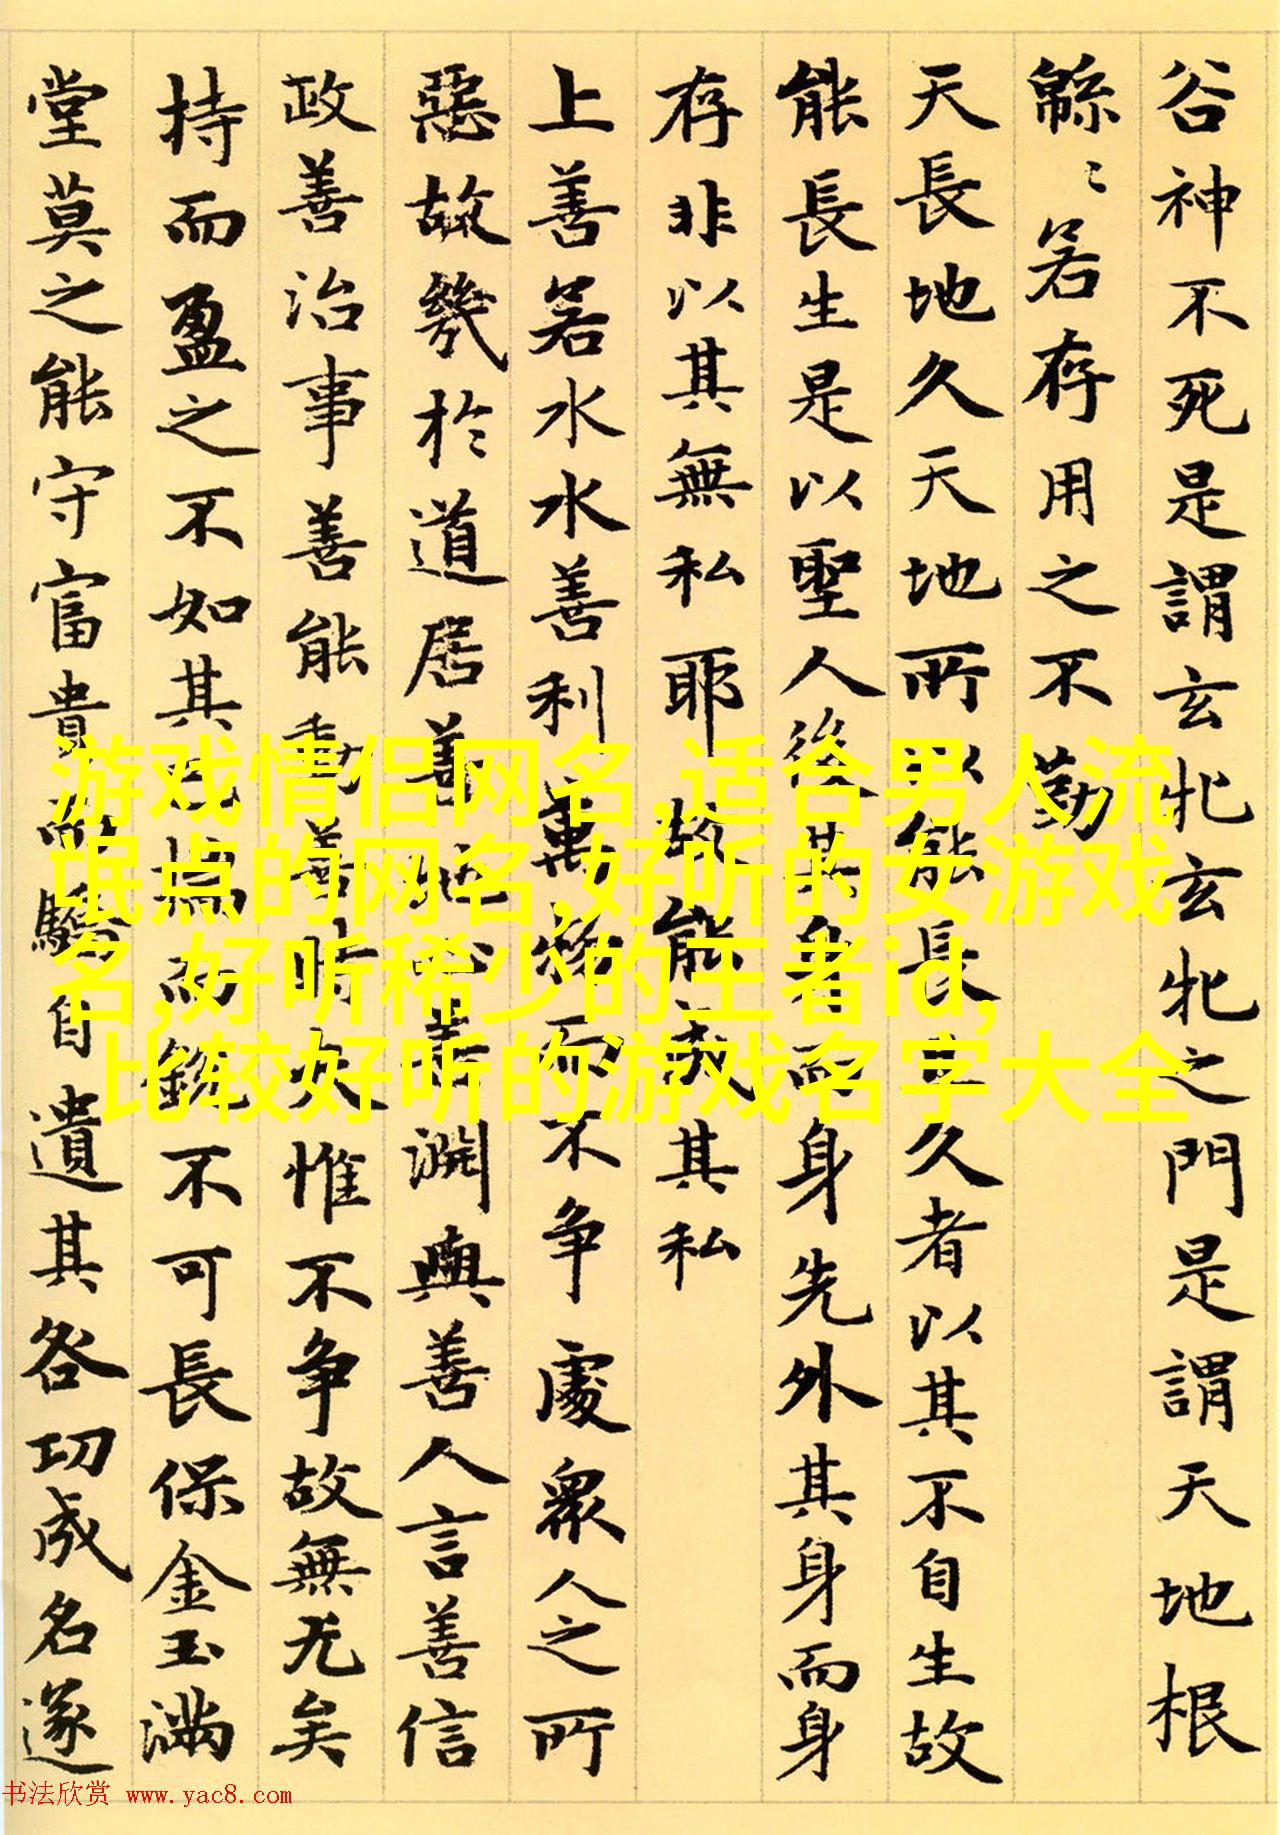 谷神不死是謂玄牝玄牝之門是謂天地根
緜〻若存用之不勤
天長地久天地所以能長且久者以其不自生故
能長生是以聖人後其身而身先外其身而身
存非以其無私耶故能成其私
上善若水水善利萬物而不争處衆人之所
惡故幾於道居善地心善淵與善人言善信
政善治事善能動善時夫惟不争故無尤矣
持而盈之不如其已揣而銳不可長保金玉滿
堂莫之能守富貴而驕自遺其咎功成名遂
游戏情侣网名,适合男人流
氓点的网名,好听的女游戏
名,好听稀少的王者id,
比较好听的游戏名字大全
书法欣赏 www.yac8.com